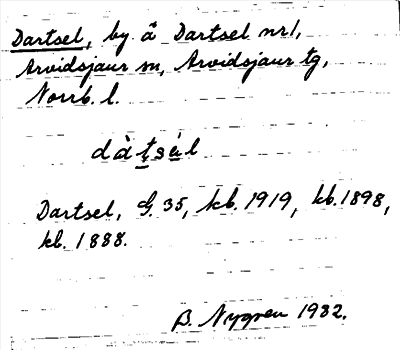 Dartsel, by å Dartsel nr 1,
Arvidsjaur sn, Arvidsjaur tg,
Norrb. l.
dàt̲sàl
Dartsel, G. 35, kb. 1919, kb. 1898,
kb. 1888.
B. Nygren 1932.